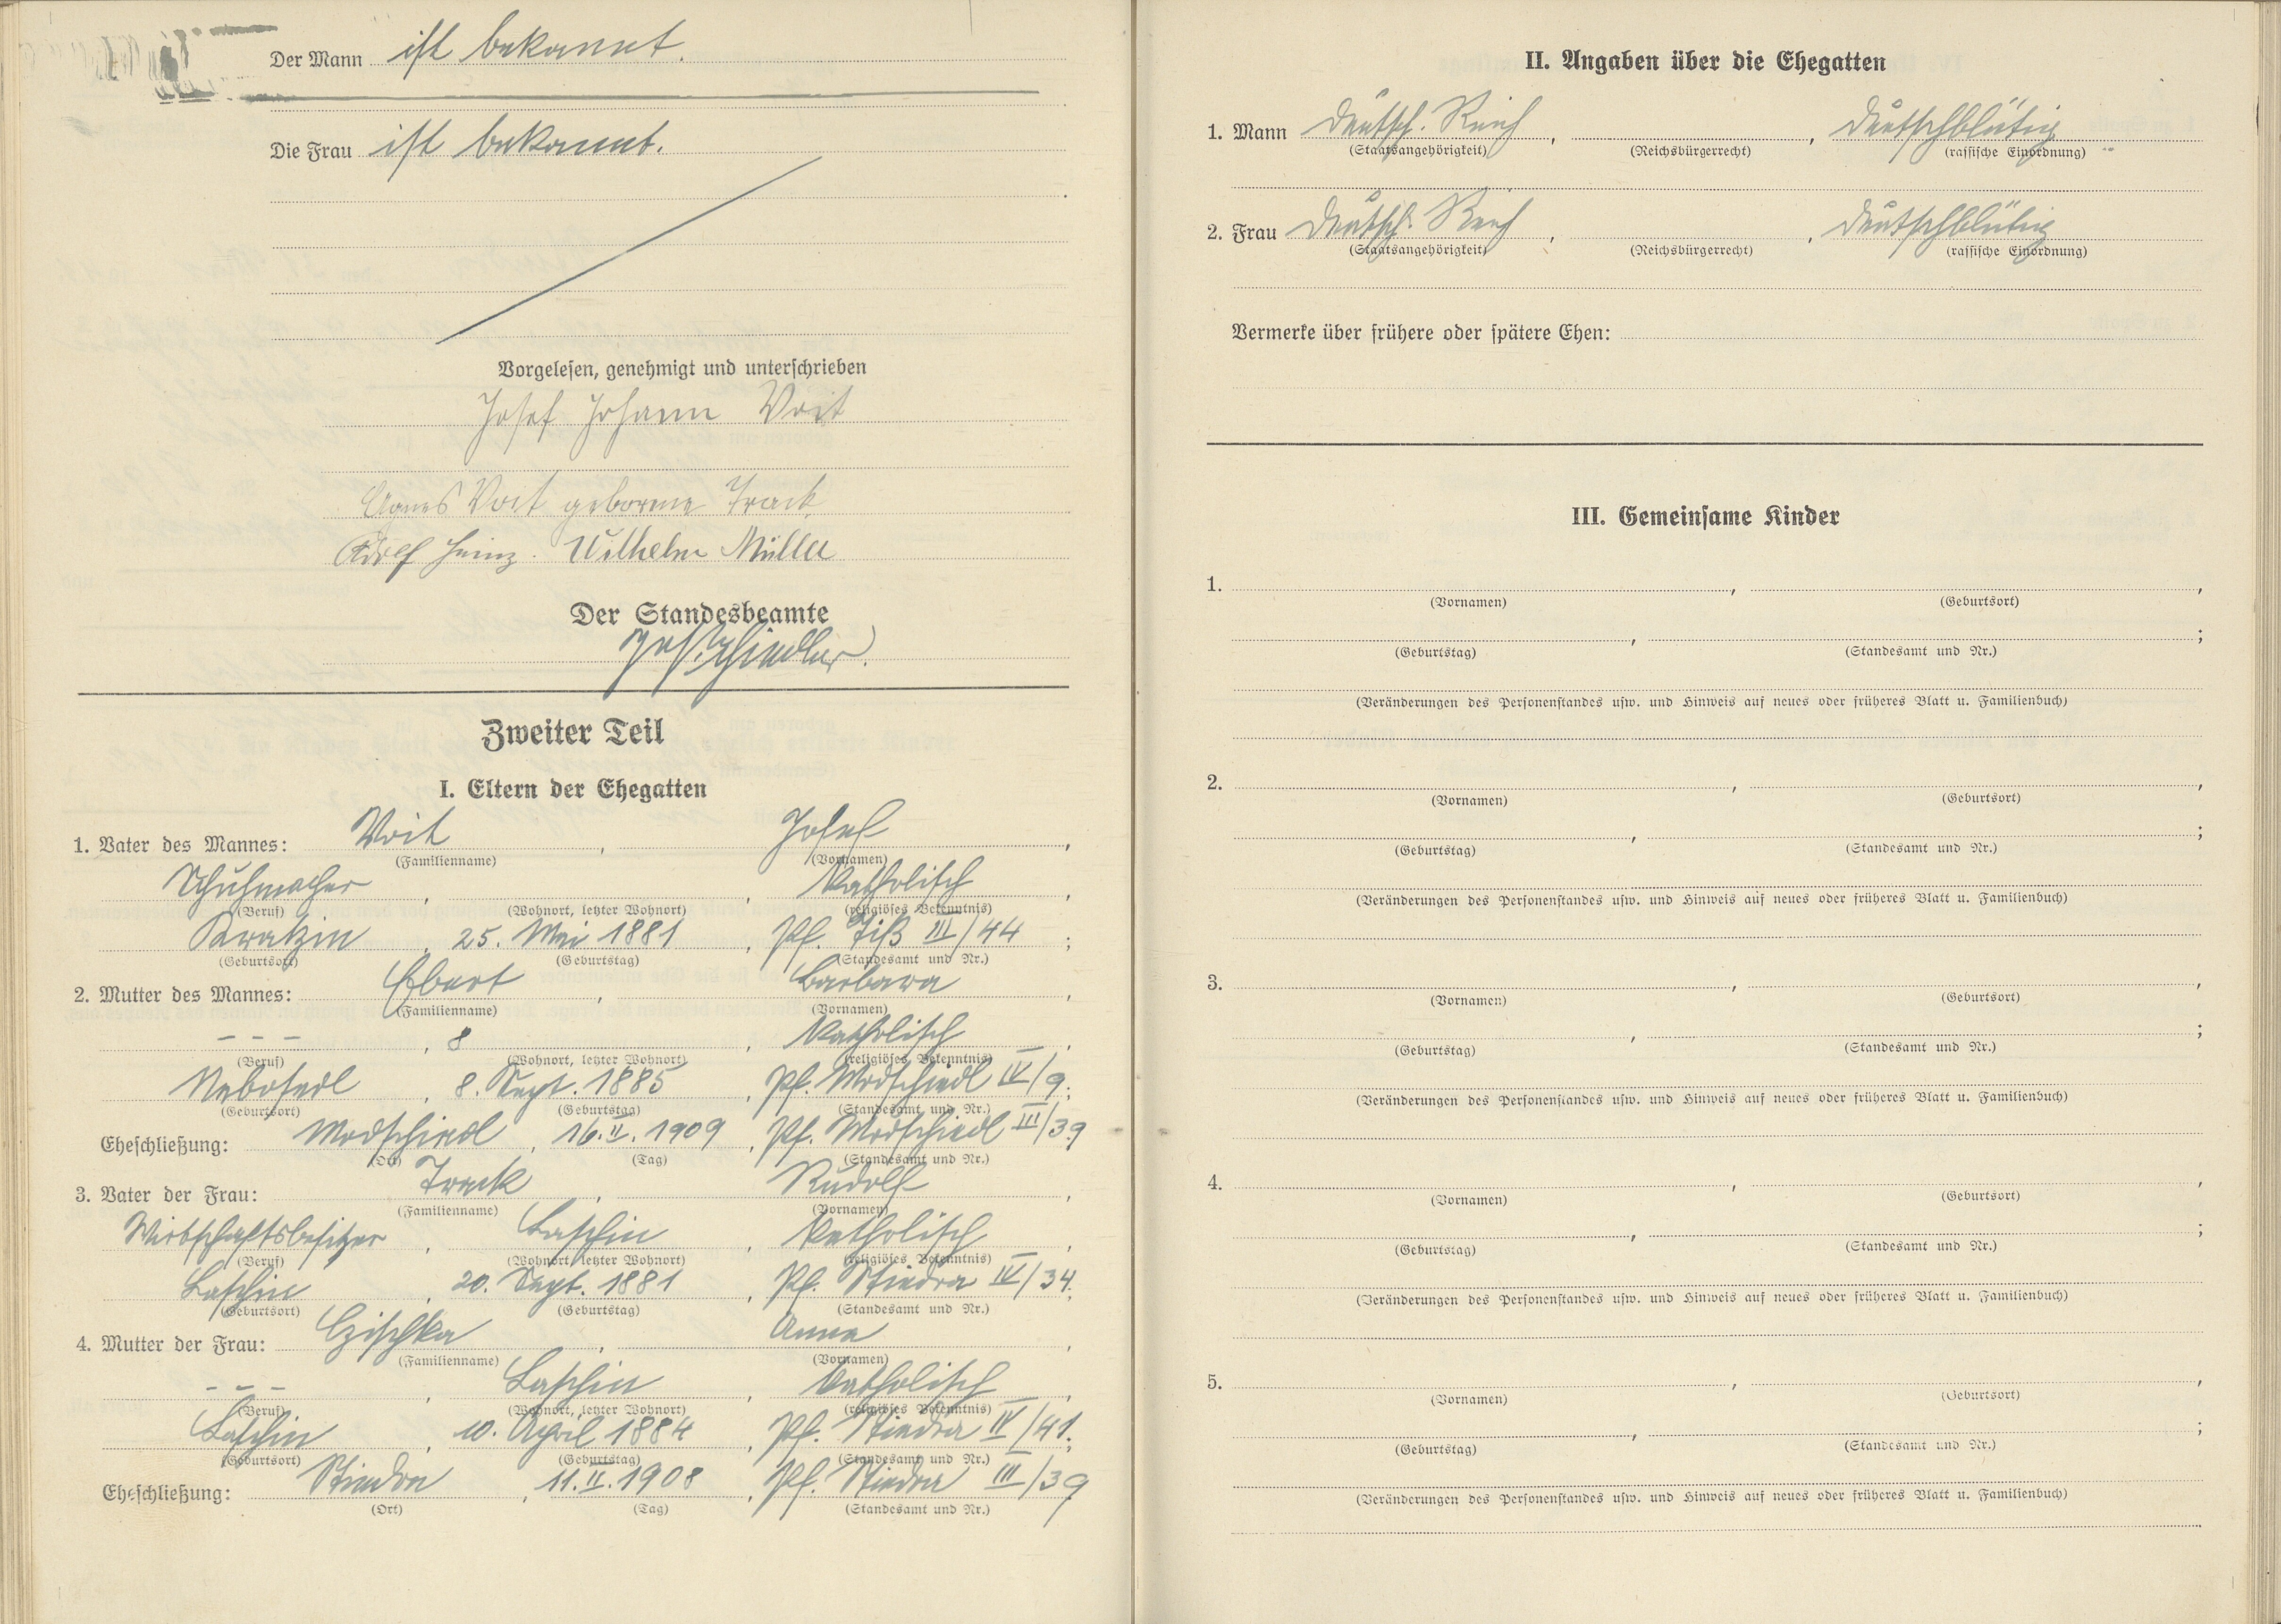 Der Mann ist bekannt.
Die Frau ist bekannt.
Vorgelesen, genehmigt und unterschrieben
Josef Johann Voit
Agnes Voit geborene Track
Adolf Heinz. Wilhelm Müller
Der Standesbeamte
Zweiter Teil
I. Eltern der Ehegatten
1. Vater des Mannes: Voit, Josef,
(Familienname) (Vornamen)
Schuhmacher, , katholisch,
(Beruf) (Wohnort, letzter Wohnort) (religiöses Bekenntnis)
Kratzin, 25. Mai 1881, Pf. Tiß III/44;
(Geburtsort) (Geburtstag) (Standesamt und Nr.)
2. Mutter des Mannes: Ebert, Barbara,
(Familienname) (Vornamen)
- - -, 8, katholisch,
(Beruf) (Wohnort, letzter Wohnort) (religiöses Bekenntnis)
Nebosedl, 8. Sept. 1885, Pf. Modschiedl IV/9;
(Geburtsort) (Geburtstag) (Standesamt und Nr.)
Eheschließung: Modschiedl, 16.II.1909, Pf. Modschiedl III/39
(Ort) (Tag) (Standesamt und Nr.)
3. Vater der Frau: Track, Rudolf,
(Familienname) (Vornamen)
Wirtschaftsbesitzer, Laschin, katholisch,
(Beruf) (Wohnort, letzter Wohnort) (religiöses Bekenntnis)
Laschin, 20. Sept. 1881, Pf. Stiedra IV/34;
(Geburtsort) (Geburtstag) (Standesamt und Nr.)
4. Mutter der Frau: Czischka, Anna,
(Familienname) (Vornamen)
- - -, Laschin, katholisch,
(Beruf) (Wohnort, letzter Wohnort) (religiöses Bekenntnis)
Laschin, 10. April 1884, Pf. Stiedra IV/41;
(Geburtsort) (Geburtstag) (Standesamt und Nr.)
Eheschließung: Stiedra, 11.II.1908, Pf. Stiedra III/39
(Ort) (Tag) (Standesamt und Nr.)
II. Angaben über die Ehegatten
1. Mann Deutsch. Reich, , deutschblütig
(Staatsangehörigkeit) (Reichsbürgerrecht) (rassische Einordnung)
2. Frau Deutsch. Reich, , deutschblütig
(Staatsangehörigkeit) (Reichsbürgerrecht) (rassische Einordnung)
Vermerke über frühere oder spätere Ehen:
III. Gemeinsame Kinder
1. , ,
(Vornamen) (Geburtsort)
, ;
(Geburtstag) (Standesamt und Nr.)
(Veränderungen des Personenstandes usw. und Hinweis auf neues oder früheres Blatt u. Familienbuch)
2. , ,
(Vornamen) (Geburtsort)
, ;
(Geburtstag) (Standesamt und Nr.)
(Veränderungen des Personenstandes usw. und Hinweis auf neues oder früheres Blatt u. Familienbuch)
3. , ,
(Vornamen) (Geburtsort)
, ;
(Geburtstag) (Standesamt und Nr.)
(Veränderungen des Personenstandes usw. und Hinweis auf neues oder früheres Blatt u. Familienbuch)
4. , ,
(Vornamen) (Geburtsort)
, ;
(Geburtstag) (Standesamt und Nr.)
(Veränderungen des Personenstandes usw. und Hinweis auf neues oder früheres Blatt u. Familienbuch)
5. , ,
(Vornamen) (Geburtsort)
, ;
(Geburtstag) (Standesamt und Nr.)
(Veränderungen des Personenstandes usw. und Hinweis auf neues oder früheres Blatt u. Familienbuch)